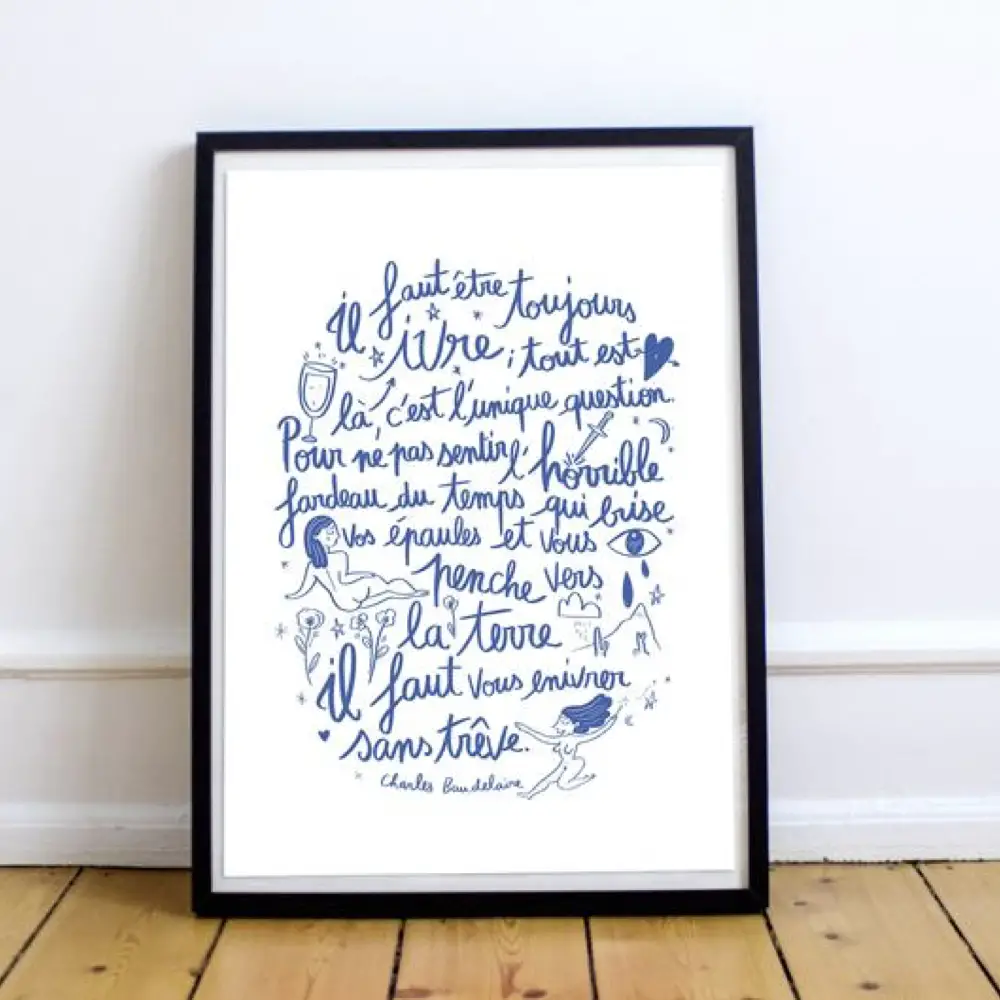 il faut être toujours
ivre; tout est
là, c'est l'unique question.
Pour ne pas sentir l'horrible
fardeau du temps qui brise
vos épaules et vous
penche vers
la terre
il faut vous enivrer
sans trêve.
Charles Baudelaire